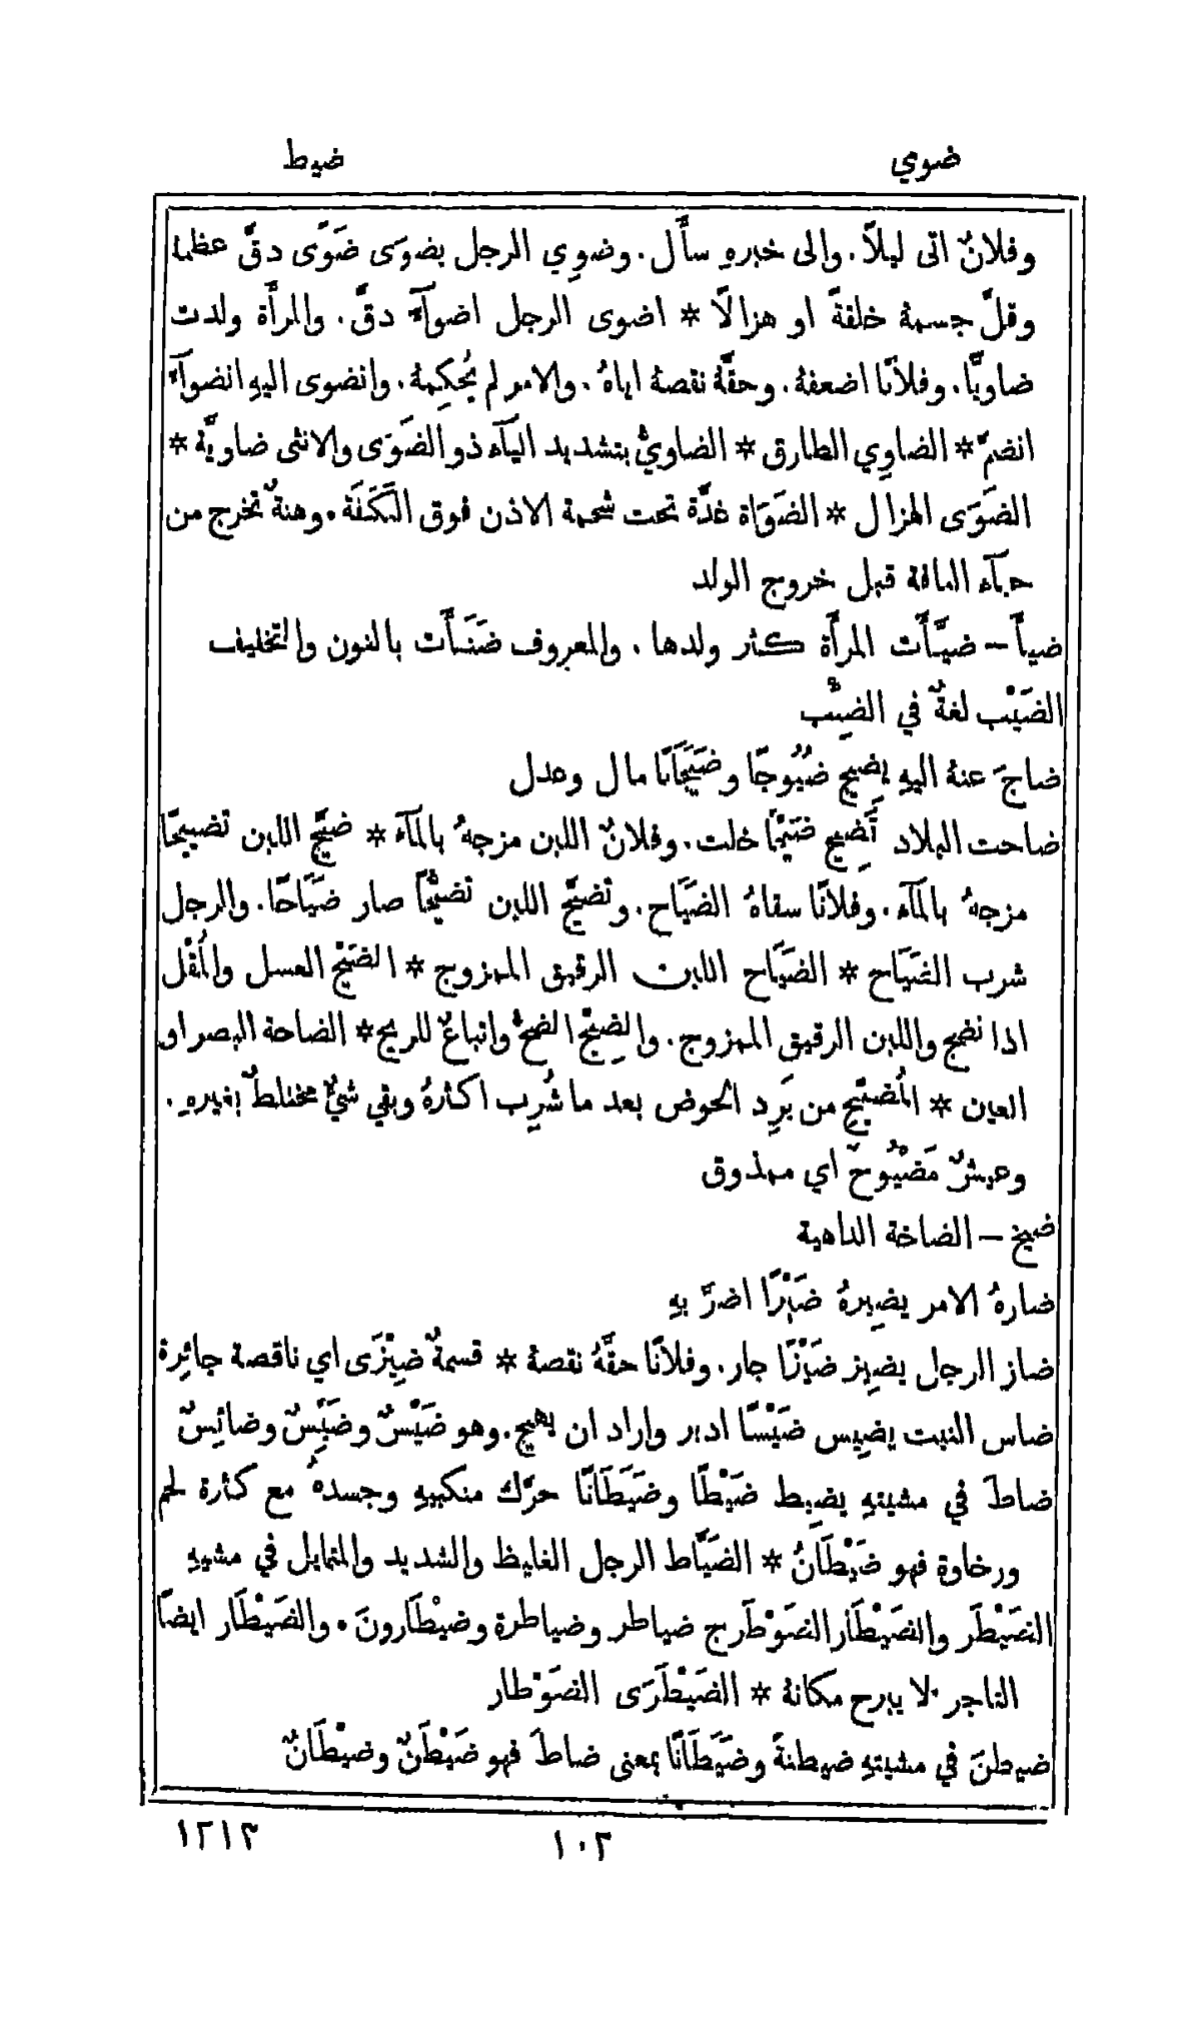 ضوي
ضيط
وفلانٌ اتى ليلًا. والى خبرهِ سأَل. وضوِي الرجل يضوَى ضَوًى دقَّ عظمهُ
وقلَّ جسمهُ خلقةً او هزالًا * اضوى الرجل اضوآءً دقَّ. والمرأَة ولدت
ضاويًّا. وفلانًا اضعفهُ. وحقَّهُ نقصهُ اياهُ. والامر لم يُحكِمهُ. وانضوى اليهِ انضوآءً
انضمَّ * الضاوِي الطارق * الضاويُّ بتشديد اليآء ذو الضَوَى والانثى ضاويَّة *
الضَوَى الهزال * الضَوَاة غدَّة تحت شحمة الاذن فوق النَّكَفَة. وهنةٌ تخرج من
حيآء الناقة قبل خروج الولد
ضيأَ – ضيَّأَت المرأَة كثر ولدها. والمعروف ضَنَأَت بالنون والتخفيف
الضَيْب لغةٌ في الضِئْب
ضاجَ عنهُ اليهِ يضِيج ضُيُوجًا وضَيَجَانًا مال وعدل
ضاحت البلاد تَضِيح ضَيْحًا خلت. وفلانٌ اللبن مزجهُ بالمآء * ضيَّح اللبن تضييحًا
مزجهُ بالمآء. وفلانًا سقاهُ الضَيَاح. وتضيَّح اللبن تضيُّحًا صار ضَيَاحًا. والرجل
شرب الضَيَاح * الضَيَاح اللبن الرقيق الممزوج * الضَيْح العسل والمُقْل
اذا نضج واللبن الرقيق الممزوج. والضِيْح الضِحُّ واتباعٌ للريح * الضاحة البصر او
العين * المُضَيِّح من يَرِد الحوض بعد ما شُرِب اكثرهُ وبقي شيءٌ مختلطٌ بغيرهِ.
وعيشٌ مَضْيُوحٌ اي ممذوق
ضيخ – الضاخة الداهية
ضارهُ الامر يضِيرهُ ضَيْرًا اضرَّ بهِ
ضاز الرجل يضِيز ضَيْزًا جار. وفلانًا حقَّهُ نقصهُ * قسمةٌ ضِيْزَى اي ناقصة جائِرة
ضاس النبت يضِيس ضَيْسًا ادبر واراد ان يهيج. وهو ضَيْسٌ وضَيِّسٌ وضائِسٌ
ضاطَ في مشيتهِ يضِيط ضَيْطًا وضَيَطَانًا حرَّك منكبيهِ وجسدهُ مع كثرة لحم
ورخاوة فهو ضَيْطَانٌ * الضَيَّاط الرجل الغليظ والشديد والمتمايل في مشيهِ
الضَيْطَر والضَيْطَار الضَوْطَر ج ضياطر وضياطرة وضيْطَارونَ. والضَيْطَار ايضًا
التاجر لا يبرح مكانهُ * الضَيْطَرَى الضَوْطار
ضيطنَ في مشيتهِ ضيطنةً وضَيَطَانًا بمعنى ضاطَ فهو ضَيْطَنٌ وضيْطَانٌ
١٠٢
١٢١٣